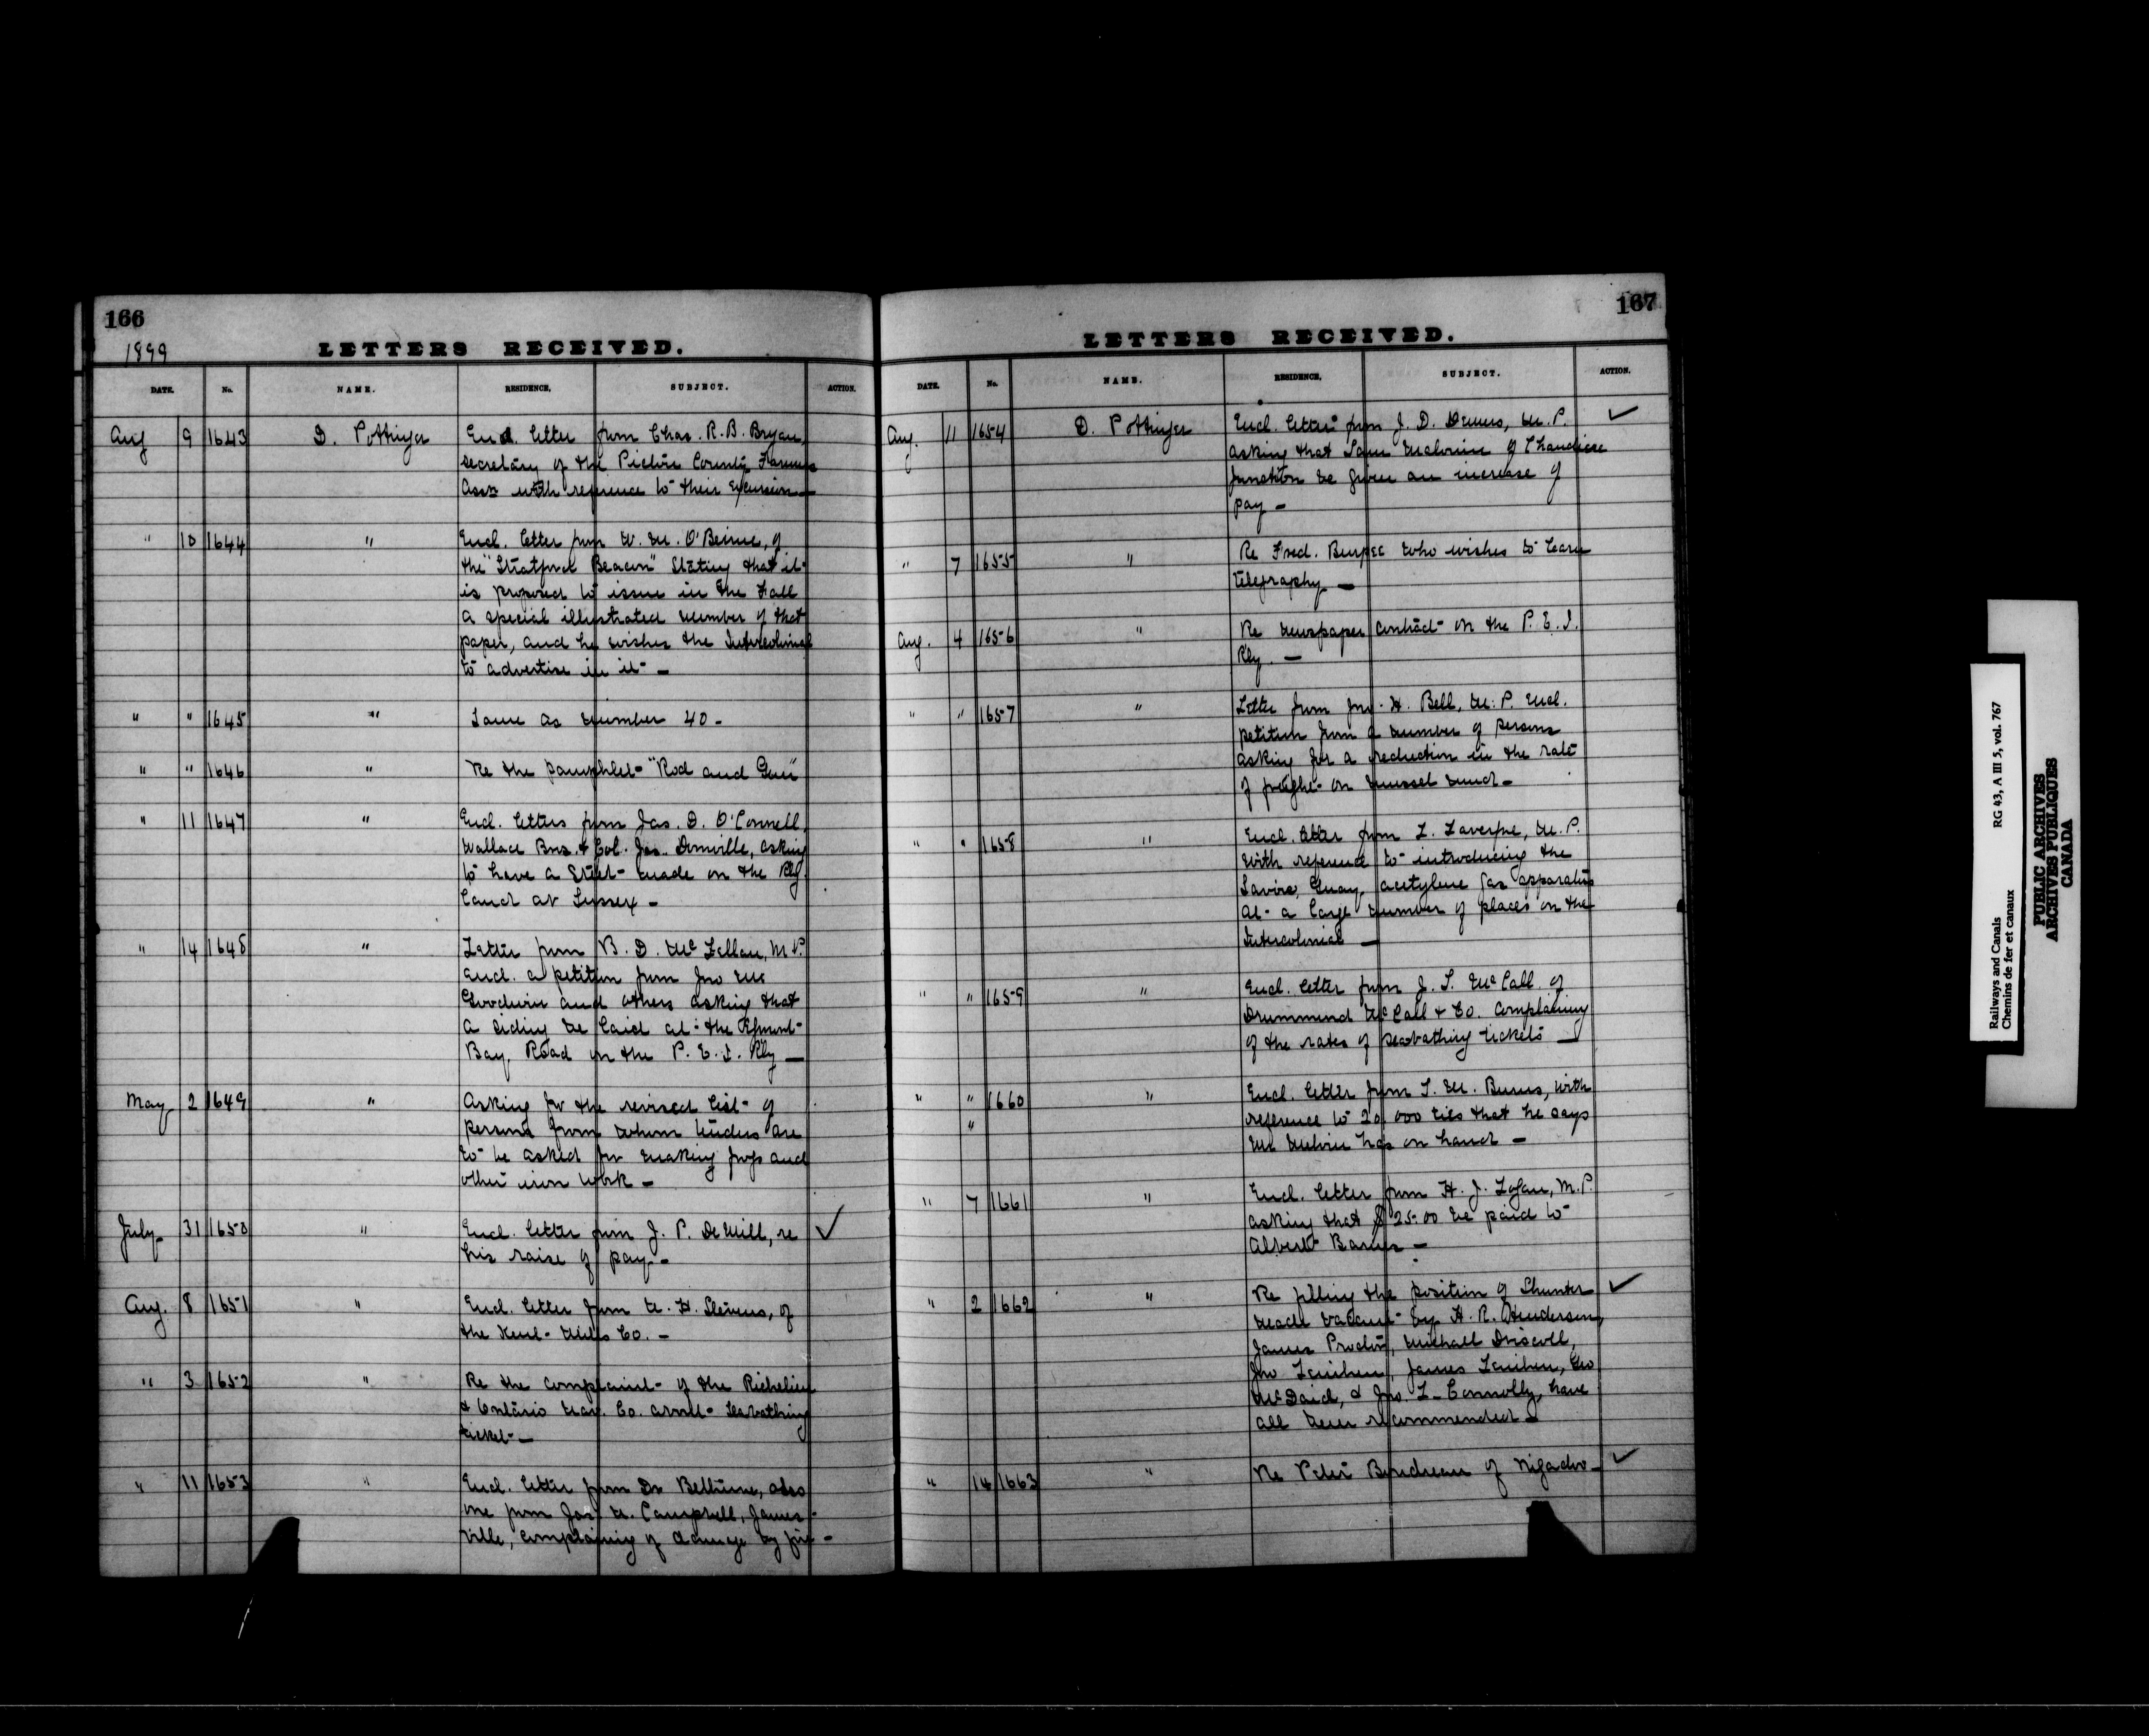 166
1899
LETTERS RECEIVED.
DATE. No. NAME. RESIDENCE, SUBJECT. ACTION.
Aug 9 1643 D. Pottinger Encl. letter from Chas. R. B. Bryan,
Secretary of the Pictou County Farmers
Assn with reference to their excursion —
" 10 1644 " Encl. letter from W. M. O'Beirne, of
the "Stratford Beacon" Stating that it
is proposed to issue in the Fall
a special illustrated number of that
paper, and he wishes the Intercolonial
to advertise in it —
" " 1645 " Same as number 40 -
" " 1646 " Re the pamphlet "Rod and Gun"
" 11 1647 " Encl. letters from Jas. D. O'Connell,
Wallace Bros. & Col. Jas. Domville, asking
to have a Street made on the Rly
land at Sussex -
" 14 1648 " Letter from B. D. McLellan, M.P.
encl. a petition from Jno Mc
Goodwin and others asking that
a siding be laid at the Egmont
Bay, Road on the P. E. I. Rly —
May 2 1649 " Asking for the revised list of
persons from whom tenders are
to be asked for making frogs and
other iron work -
July 31 1650 " Encl. letter from J. P. DeMill, re ✓
his raise of pay -
Aug. 8 1651 " Encl. letter from W. H. Stevens, of
the Kent Mills Co. -
" 3 1652 " Re the complaint of the Richelieu
& Ontario Nav. Co. about Seabathing
ticket —
" 11 1653 " Encl. letter from Dr Bethune, also
one from Jas. W. Campbell, James-
ville, complaining of damage by fire -
167
LETTERS RECEIVED.
DATE. No. NAME. RESIDENCE, SUBJECT. ACTION.
Aug. 11 1654 D. Pottinger Encl. letter from J. D. M.P. ✓
asking that of Chaudiere
Junction be given an increase of
pay -
" 7 1655 " Re Fred. Burpee who wishes to learn
telegraphy —
Aug. 4 1656 " Re newspaper contract on the P. E. I.
Rly. —
" " 1657 " Letter from Jno. H. Bell, M.P. encl.
petition from a number of persons
asking for a reduction in the rate
of freight on mussel mud -
" " 1658 " Encl. letter from L. Lavergne, M.P.
with reference to introducing the
Savoie, Guay, acetylene gas apparatus
at a large number of places on the
Intercolonial —
" " 1659 " Encl. letter from J. T. McCall of
Drummond McCall & Co. complaining
of the rates of seabathing tickets —
" " 1660 " Encl. letter from T. M. Burns, with
" reference to 20,000 ties that he says
Mr Melvin has on hand -
" 7 1661 " Encl. letter from H. J. Logan, M.P.
asking that $25.00 be paid to
Albert Barnes -
" 2 1662 " Re filling the position of Shunter ✓
made vacant by H. R. Henderson,
James Proctor, Michall Driscoll,
Jno Lenihen, James Lenihen, Geo
McDaid, & Jno. L. Connolly, have
all been recommended -
" 14 1663 " Re Peter Boudreau of Nigadoo - ✓
Railways and Canals RG 43, A III 5, vol. 767
Chemins de fer et canaux
PUBLIC ARCHIVES
ARCHIVES PUBLIQUES
CANADA